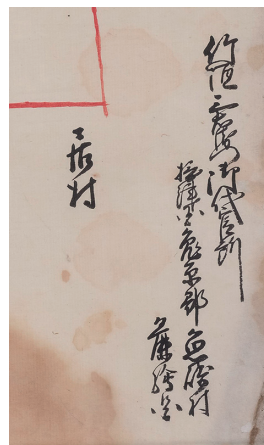 竹垣三右衛門御代官所
摂津国兎原郡魚崎村
麁絵図
村